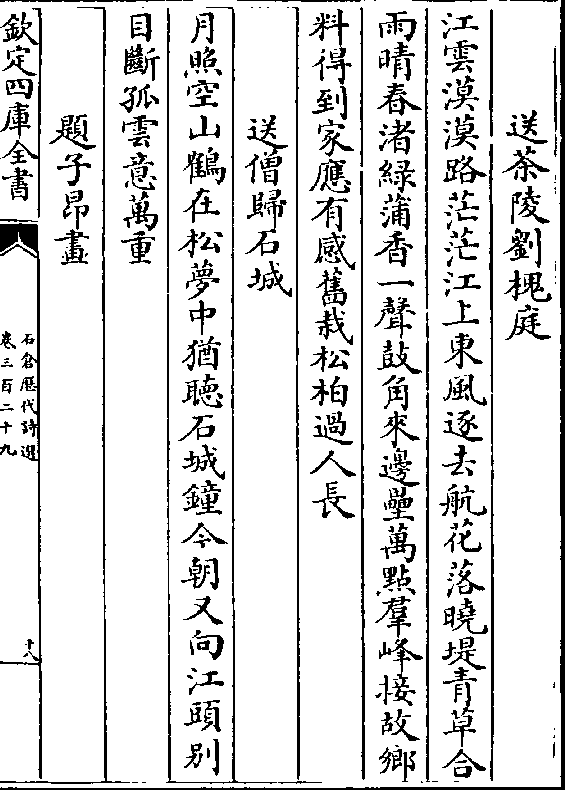 送茶陵劉槐庭
江雲漠漠路茫茫江上東風逐去航花落曉堤青草合
雨晴春渚綠蒲香一聲鼓角來邊壘萬點羣峰接故鄉
料得到家應有感舊栽松柏過人長
送僧歸石城
月照空山鶴在松夢中猶聽石城鐘今朝又向江頭別
目斷孤雲意萬重
題子昂畫
欽定四庫全書
石倉歷代詩選
卷三百二十九
十八